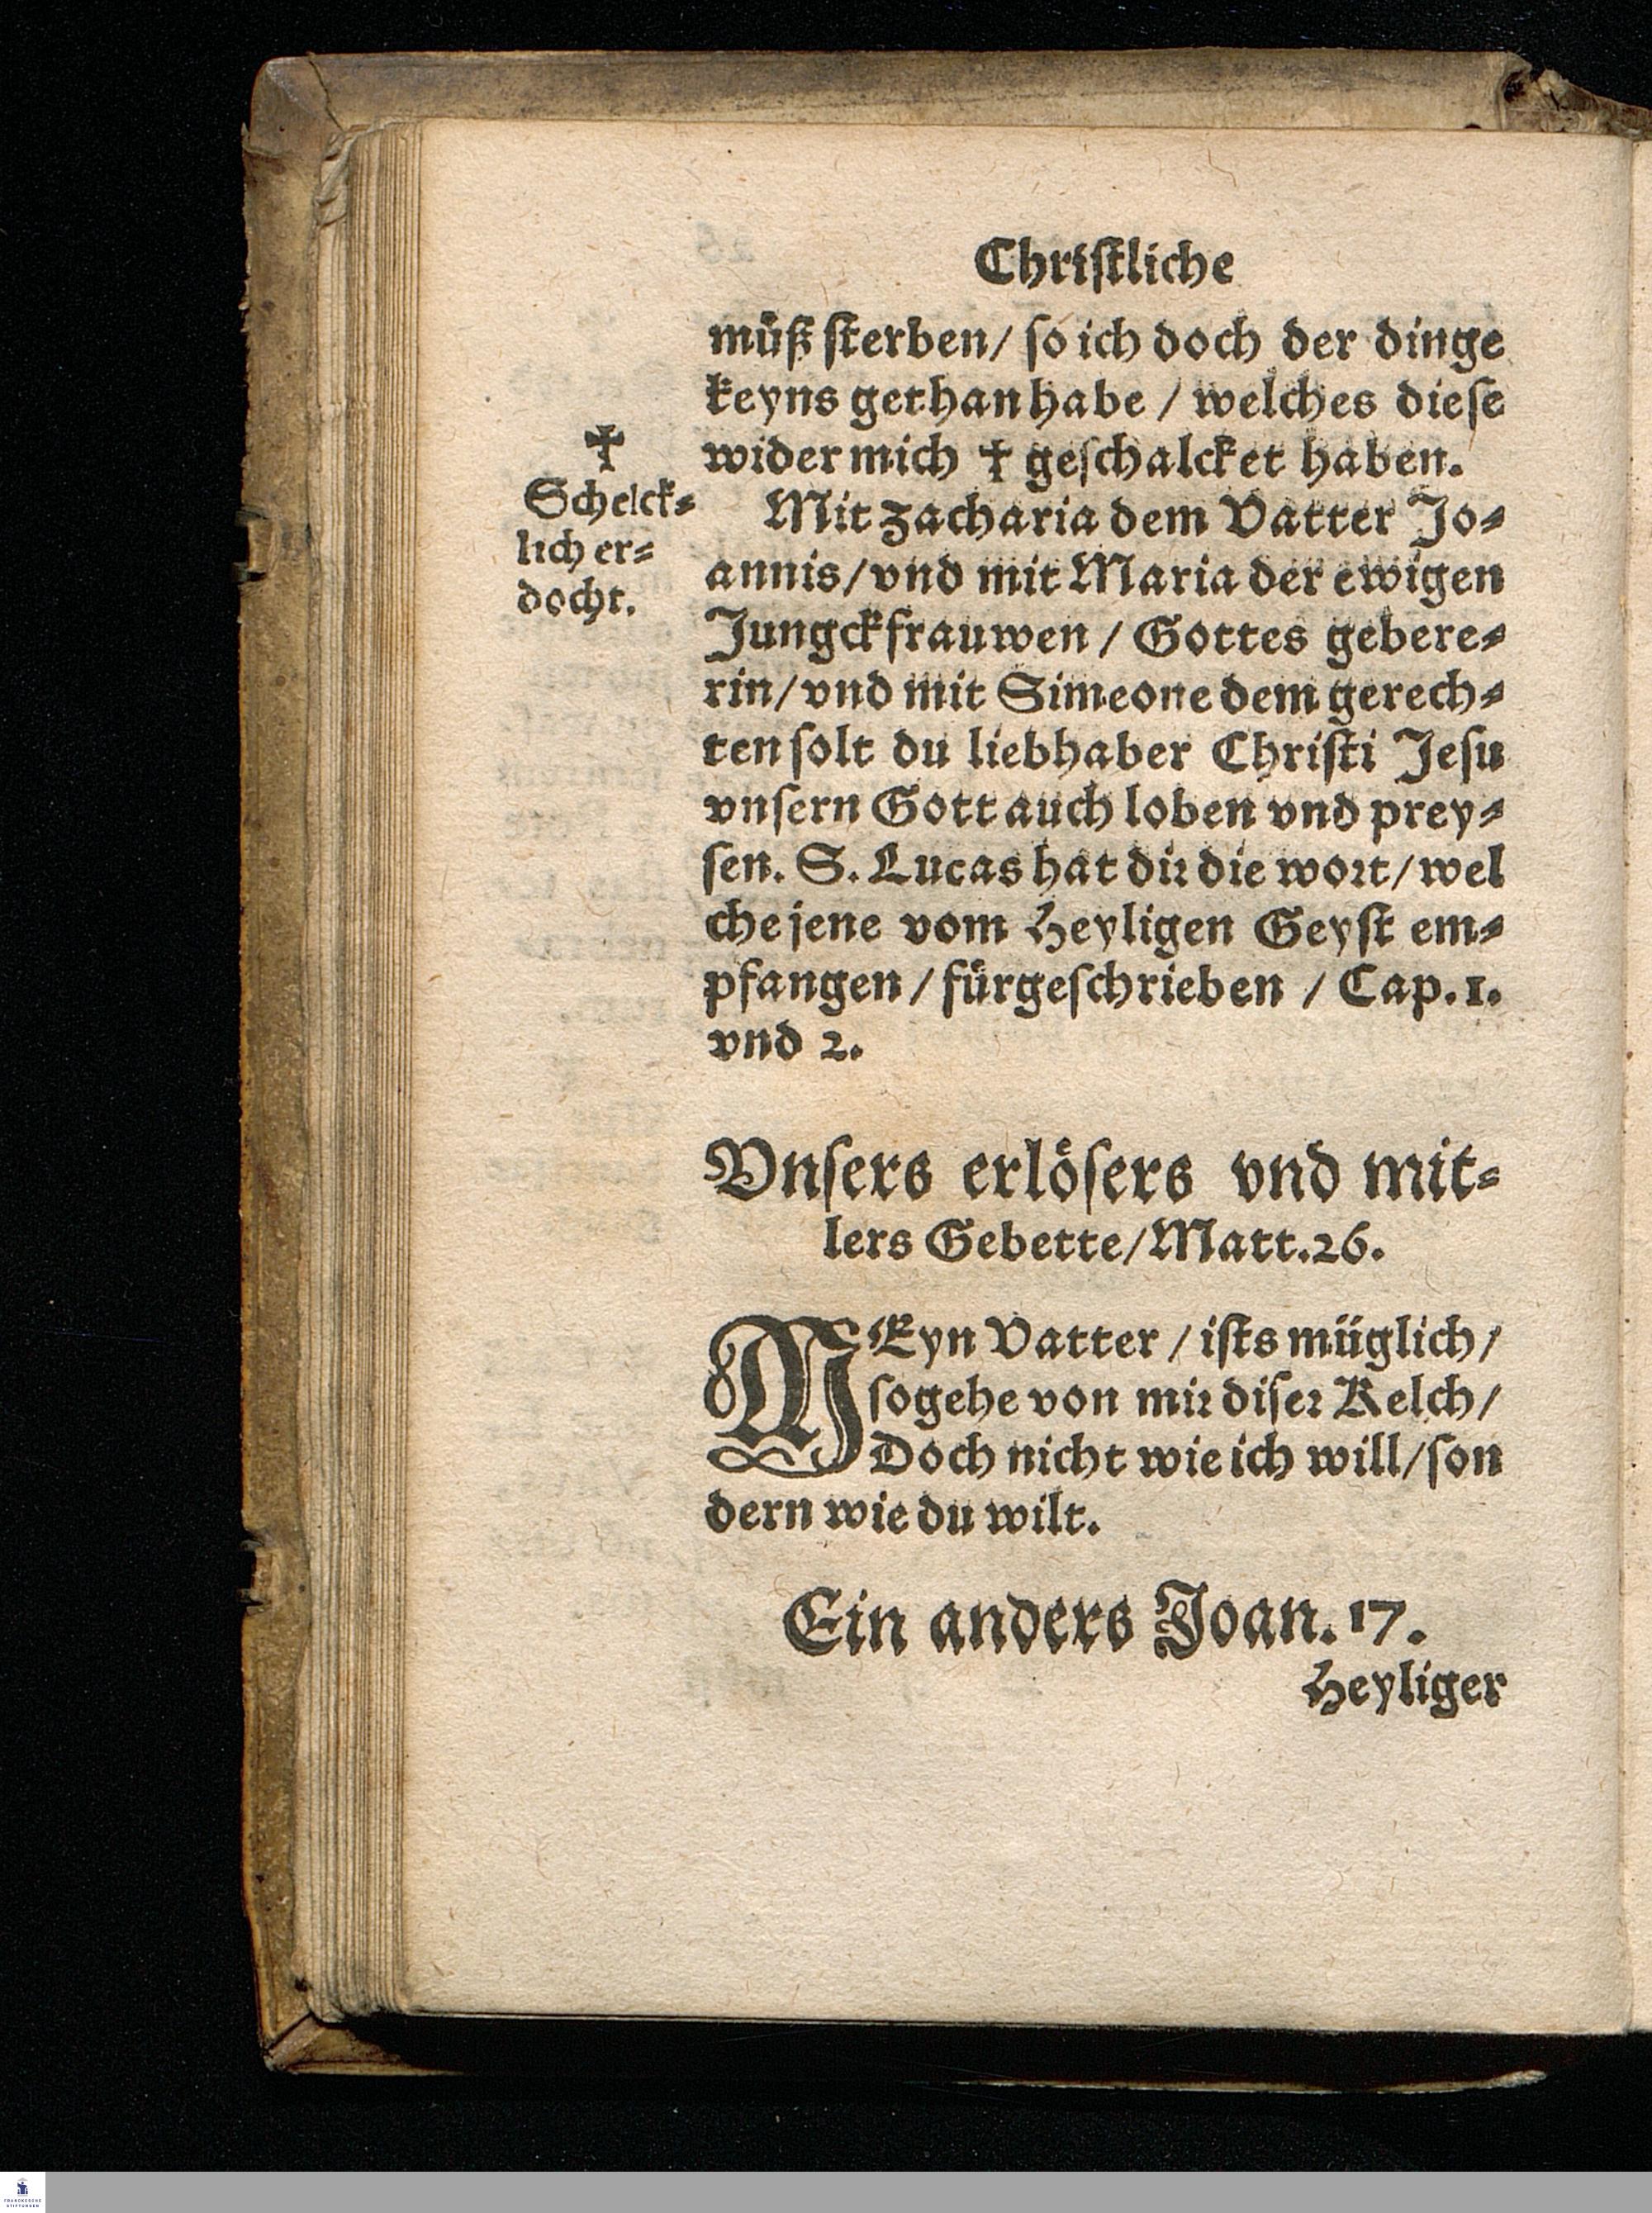 Chriſtliche
muͤß ſterben/ ſo ich doch der dinge
keyns gethan habe / welches dieſe
wider mich ✝ geſchalcket haben.
✝
Schelck⸗
lich er⸗
docht.
Mit Zacharia dem Vatter Jo⸗
annis/ vnd mit Maria der ewigen
Jungckfrauwen / Gottes gebere⸗
rin/ vnd mit Simeone dem gerech⸗
ten ſolt du liebhaber Chriſti Jeſu
vnſern Gott auch loben vnd prey⸗
ſen. S. Lucas hat dir die wort/ wel
che jene vom Heyligen Geyſt em⸗
pfangen / fuͤrgeſchrieben / Cap. 1.
vnd 2.
Vnſers erloͤſers vnd mit⸗
lers Gebette/ Matt. 26.
MEyn Vatter / iſts muͤglich/
ſo gehe von mir diſer Kelch/
Doch nicht wie ich will/ ſon
dern wie du wilt.
Ein anders Joan. 17.
Heyliger
FRANCKESCHE
STIFTUNGEN